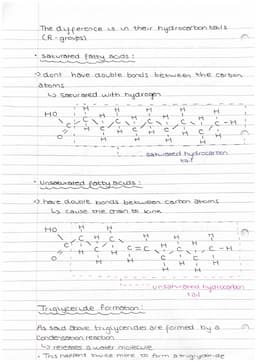 The difference is in their hydrocarbon tails
(R-groups)
• Saturated fatty acids:
→ dont have double bonds between the carbon
atoms
↳ saturated with hydrogen
saturated hydrocarbon
tail
• Unsaturated fatty acids:
→ have double bonds between carbon atoms
↳ cause the chain to kink
unsaturated hydrocarbon
tail
Triglyceride formation:
As said above triglycerides are formed by a
condensation reaction
↳ releases a water molecule
• This happens twice more to form a triglyceride